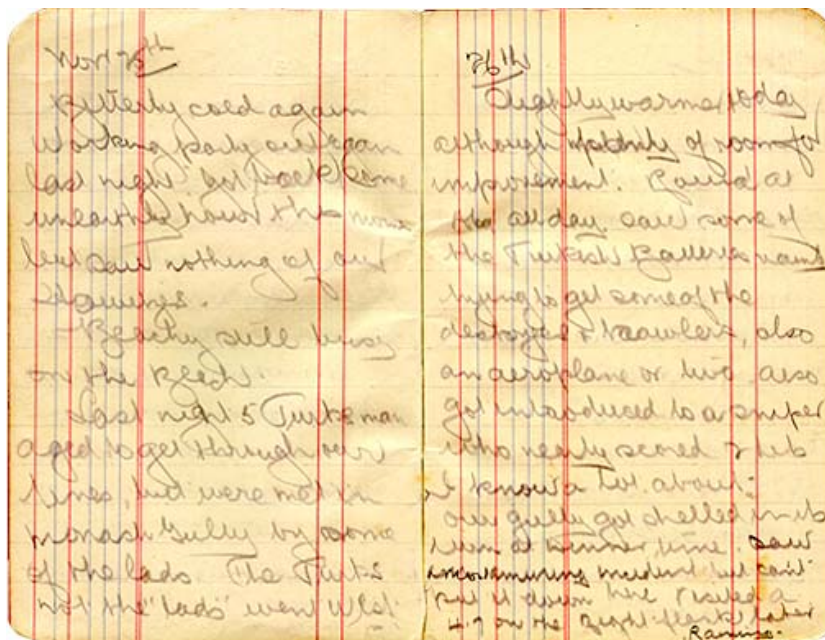 Nov 25th
Bitterly cold again
Working party out again
last night got back some
unearthly hour this morn
but saw nothing of our
Beachy still busy
on the Beach.
Last night 5 Turks man
aged to get through our
lines, but were met in
Monash Gully by some
of the lads The Turks
not the "lads" went West
26th
Slightly warmer today
although plenty of room for
improvement. at
all day saw some of
the Turkish Batteries
trying to get some of the
destroyers & trawlers, also
an aeroplane or two also
got introduced to a sniper
who nearly scored &
I know a lot about:
our gully got shelled in its
turn at dinner time. Saw
amusing incident but can't
put it down here Visited a
on the Right flank later